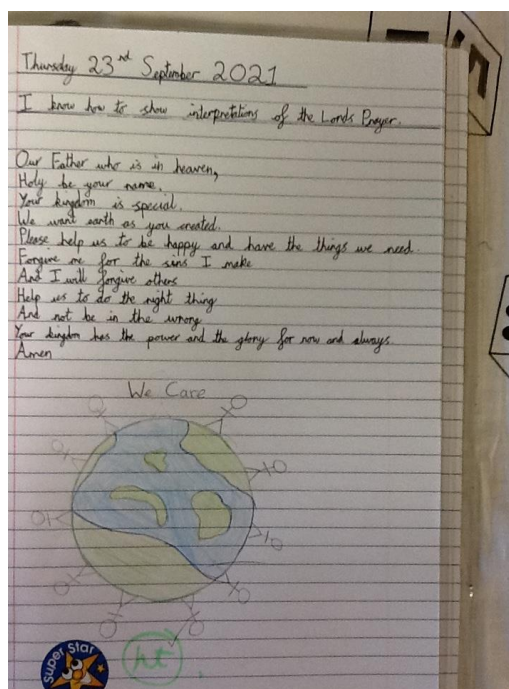 Thursday 23rd September 2021
I know how to show interpretations of the Lords Prayer.
Our Father who is in heaven,
Holy be your name.
Your kingdom is special.
We want earth as you created.
Please help us to be happy and have the things we need.
Forgive me for the sins I make
And I will forgive others
Help us to do the right thing
And not be in the wrong
Your kingdom has the power and the glory for now and always.
Amen
We Care
Super Star
ht